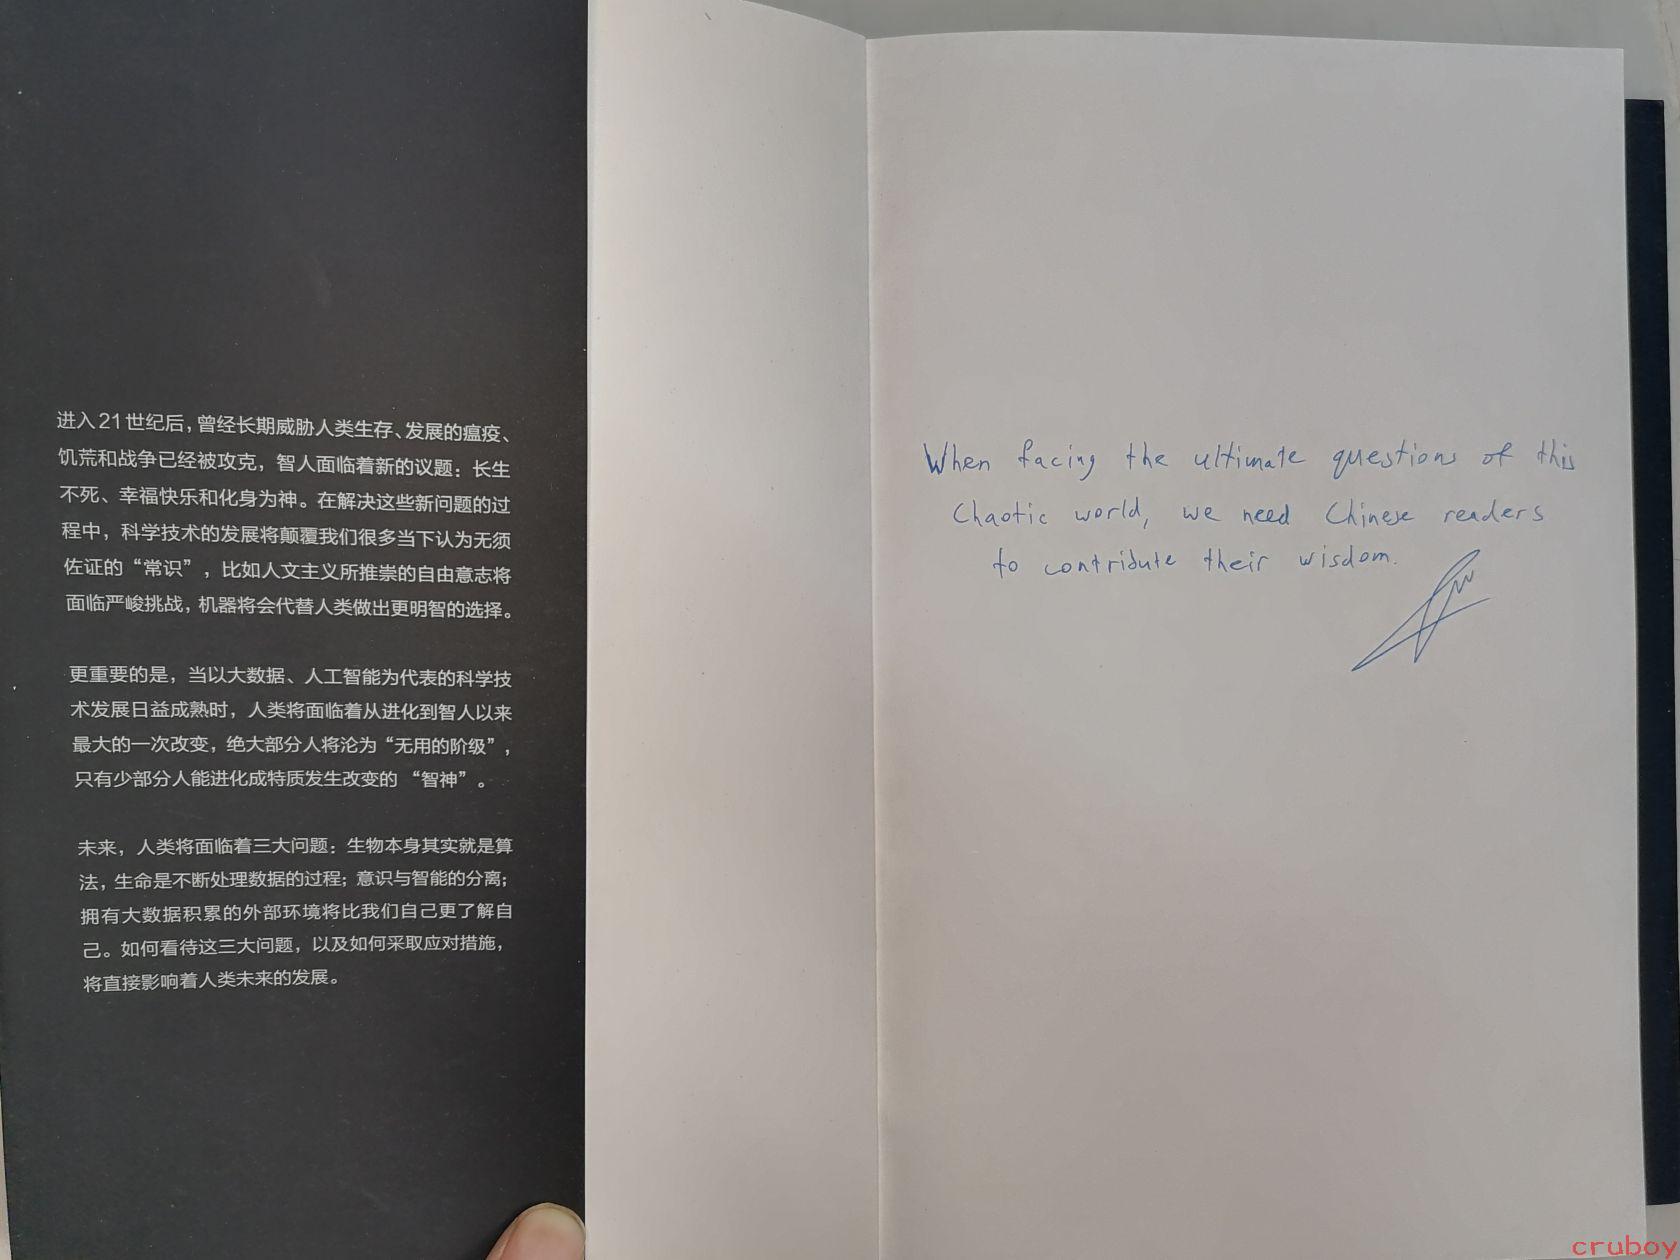 进入21世纪后，曾经长期威胁人类生存、发展的瘟疫、
饥荒和战争已经被攻克，智人面临着新的议题：长生
不死、幸福快乐和化身为神。在解决这些新问题的过
程中，科学技术的发展将颠覆我们很多当下认为无须
佐证的“常识”，比如人文主义所推崇的自由意志将
面临严峻挑战，机器将会代替人类做出更明智的选择。
更重要的是，当以大数据、人工智能为代表的科学技
术发展日益成熟时，人类将面临着从进化到智人以来
最大的一次改变，绝大部分人将沦为“无用的阶级”，
只有少部分人能进化成特质发生改变的“智神”。
未来，人类将面临着三大问题：生物本身其实就是算
法，生命是不断处理数据的过程；意识与智能的分离；
拥有大数据积累的外部环境将比我们自己更了解自
己。如何看待这三大问题，以及如何采取应对措施，
将直接影响着人类未来的发展。
When facing the ultimate questions of this
Chaotic world, we need Chinese readers
to contribute their wisdom.
cruboy